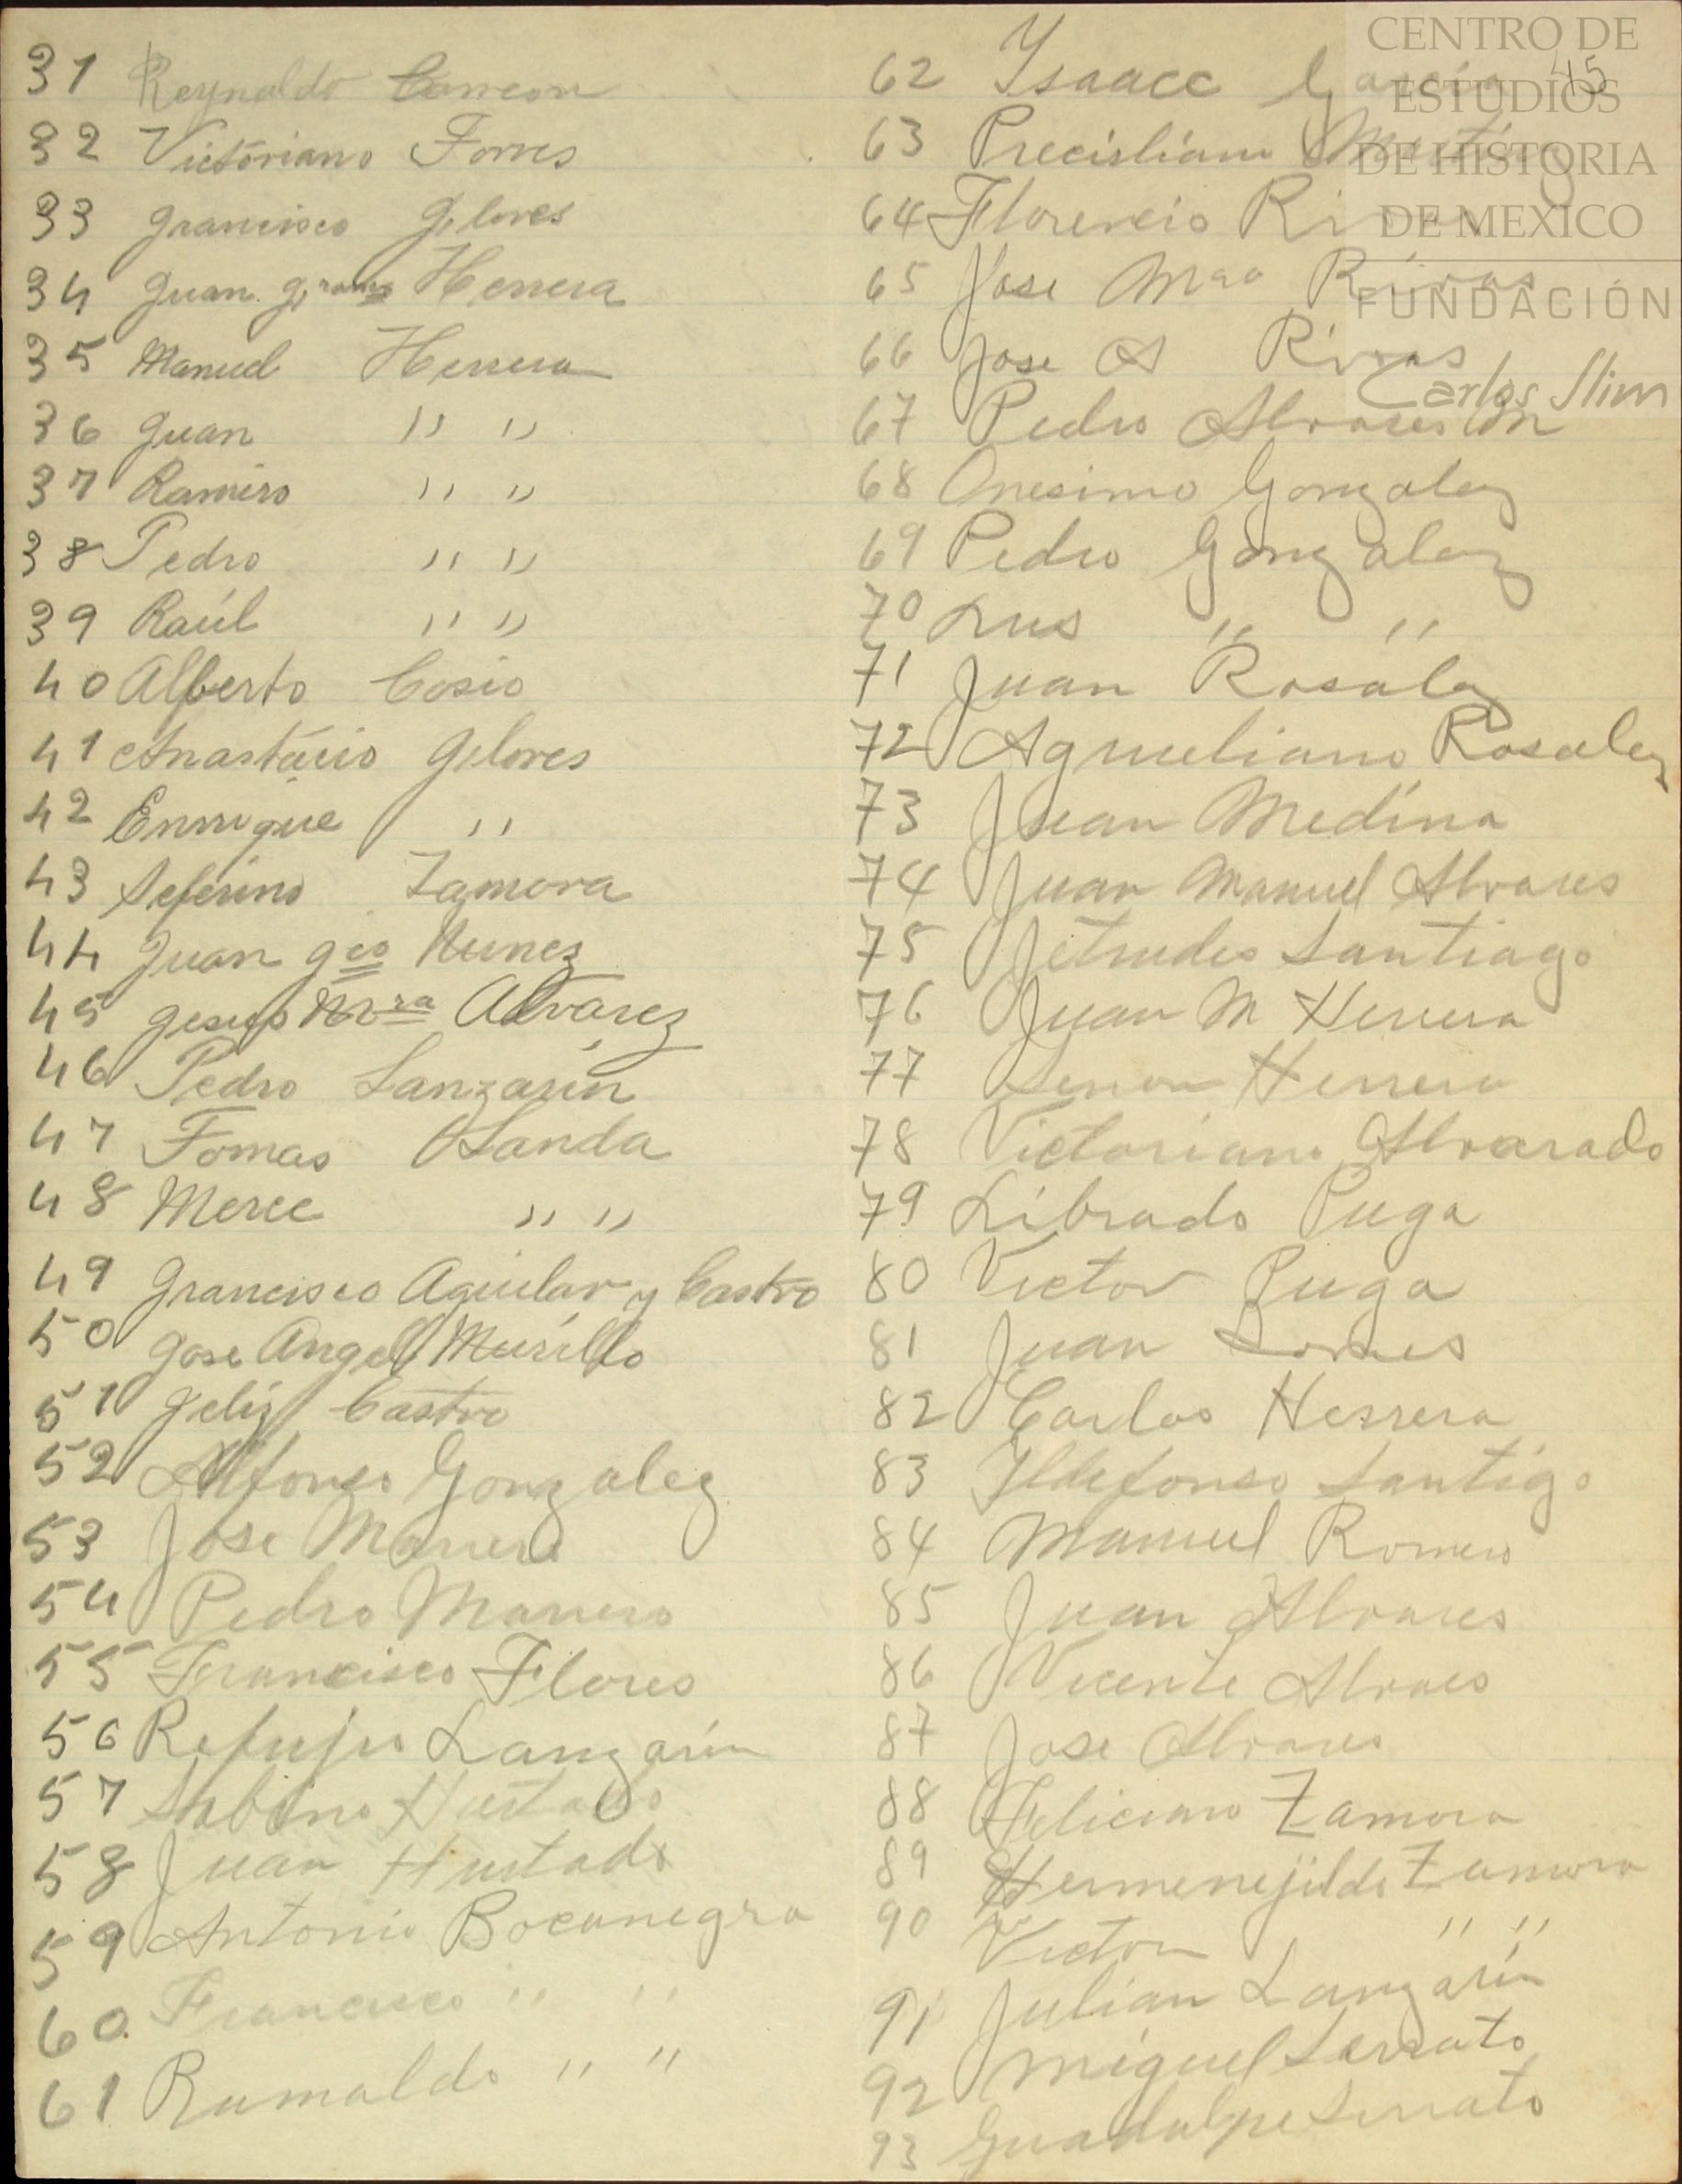 31 Reynaldo
32 Victoriano Torres
33 Francisco Flores
34 Juan Herrera
35 Manuel Herrera
36 Juan " "
37 Ramiro " "
38 Pedro " "
39 Raúl " "
40 Alberto Cosio
41 Anastácio Flores
42 Enrrique "
43 Seferino Zamora
44 Juan Nunez
45 Jesus Ma Alvarez
46 Pedro Lanzarin
47 Tomas Landa
48 Merce " "
49 Francisco Aguilar y Castro
50 Jose Angel Murillo
51 Feliz Castro
52 Alfonso Gonzalez
53 Jose
54 Pedro
55 Francisco Flores
56 Refujio Lanzarin
57 Sabino Hurtado
58 Juan Hurtado
59 Antonio Bocanegra
60. Francisco " "
61 Rumaldo " "
62 Ysaacc Garcia
63 Precisliano
64 Florencio
65 Jose Mao Rivas
66 Jose A Rivas
67 Pedro Alvares
68 Onesimo Gonzalez
69 Pedro Gonzalez
70 Lus " "
71 Juan Rosalez
72 Rosalez
73 Juan Medina
74 Juan Manuel Alvares
75 Jetrudes Santiago
76 Juan M Herrera
77 Herrera
78 Victoriano Alvarado
79 Librado Puga
80 Victor Puga
81 Juan
82 Carlos Herrera
83 Yldefonso Santigo
84 Manuel Romero
85 Juan Alvares
86 Vicente Alvaes
87 Jose Alvares
88 Feliciano Zamora
89 Hermenejildo Zamora
90 Victor " "
91 Julian Lanzarin
92 Miguel Serrato
93 Guadalpe Serrato
45
CENTRO DE
ESTUDIOS
DE HISTORIA
DE MEXICO
FUNDACIÓN
Carlos Slim